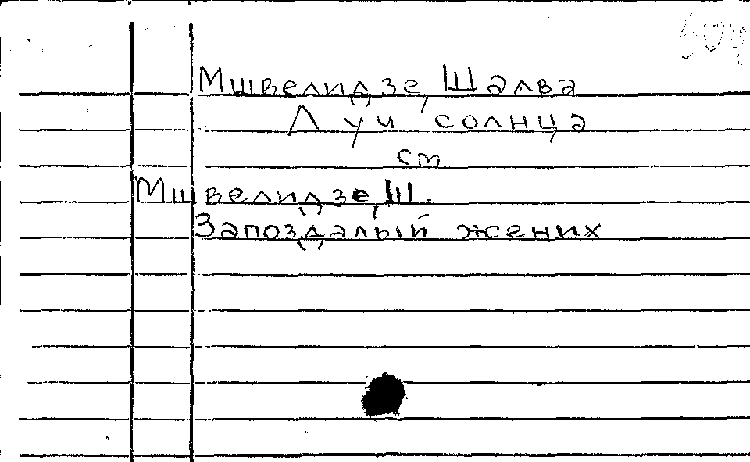 Мшвелидзе, Шалва
Лучи солнца
см
Мшвелидзе, Ш.
Запоздалый жених